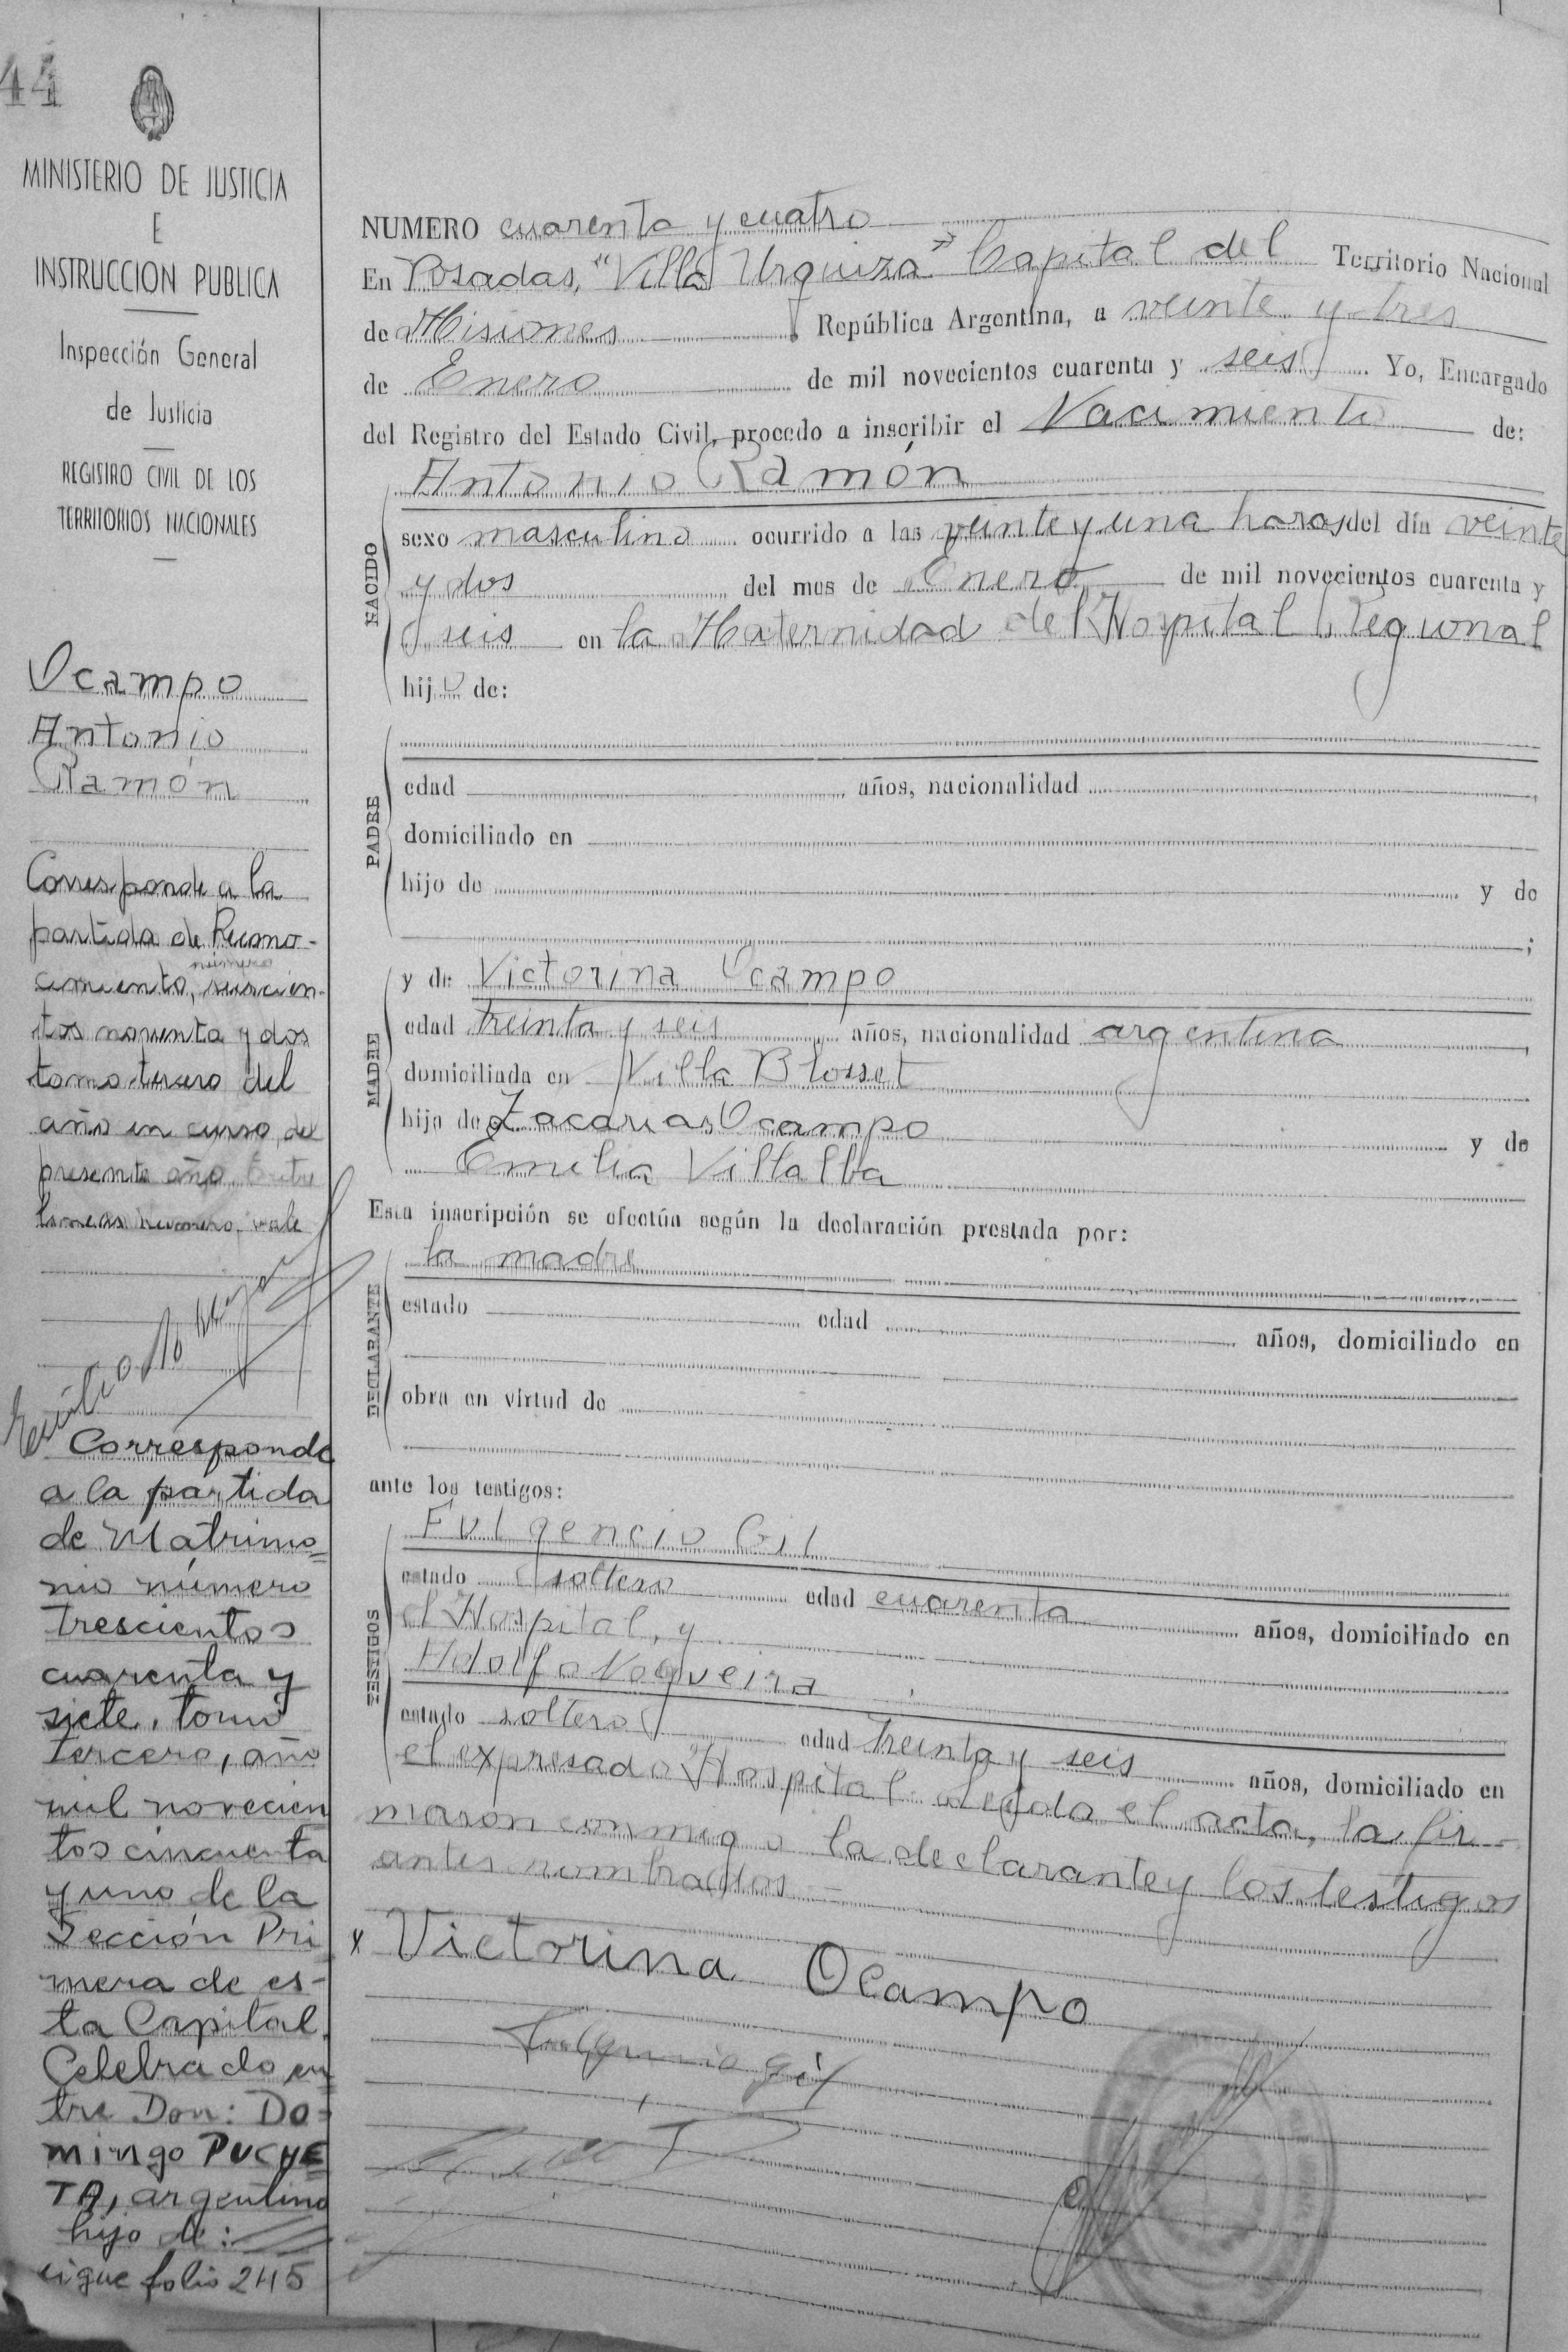 44
MINISTERIO DE JUSTICIA
E
INSTRUCCION PUBLICA
Inspección General
de Justicia
REGISTRO CIVIL DE LOS
TERRITORIOS NACIONALES
Ocampo
Antonio
Ramón
Corresponde a la
partida de Recono-
número
cimiento, seiscien-
tos noventa y dos
tomo tercero del
año en curso, del
presente año. Entre
lineas número. vale
Corresponde
a la partida
de Matrimo=
nio número
trescientos
cuarenta y
siete, tomo
tercero, año
mil novecien
tos cincuenta
y uno de la
Sección Pri
mera de es-
ta Capital.
Celebrado en
tre Don: Do=
mingo PUCHE
TA, argentino
hijo de:
sigue folio 245
NUMERO cuarenta y cuatro
En Posadas, "Villa Urquiza" Capital del Territorio Nacional
de Misiones República Argentina, a veinte y tres
de Enero de mil novecientos cuarenta y seis Yo, Encargado
del Registro del Estado Civil, procedo a inscribir el Nacimiento de:
NACIDO
Antonio Ramón
sexo masculino ocurrido a las veinte y una horas del día veinte
y dos del mes de Enero de mil novecientos cuarenta y
seis en la Maternidad del Hospital Regional
hijo de:
PADRE
edad años, nacionalidad
domiciliado en
hijo de y de
;
MADRE
y de Victorina Ocampo
edad treinta y seis años, nacionalidad argentina
domiciliada en Villa Blosset
hija de Zacarias Ocampo y de
Emilia Villalba
Esta inscripción se efectúa según la declaración prestada por:
DECLARANTE
la madre
estado edad años, domiciliado en
obra en virtud de
ante los testigos:
TESTIGOS
Fulgencio Gil
estado soltero edad cuarenta años, domiciliado en
el Hospital, y
Adolfo Nogueira
estado soltero edad treinta y seis años, domiciliado en
el expresado Hospital. Leída el acta, la fir-
maron conmigo la declarante y los testigos
antes nombrados.—
x Victorina Ocampo
Fulgencio gil